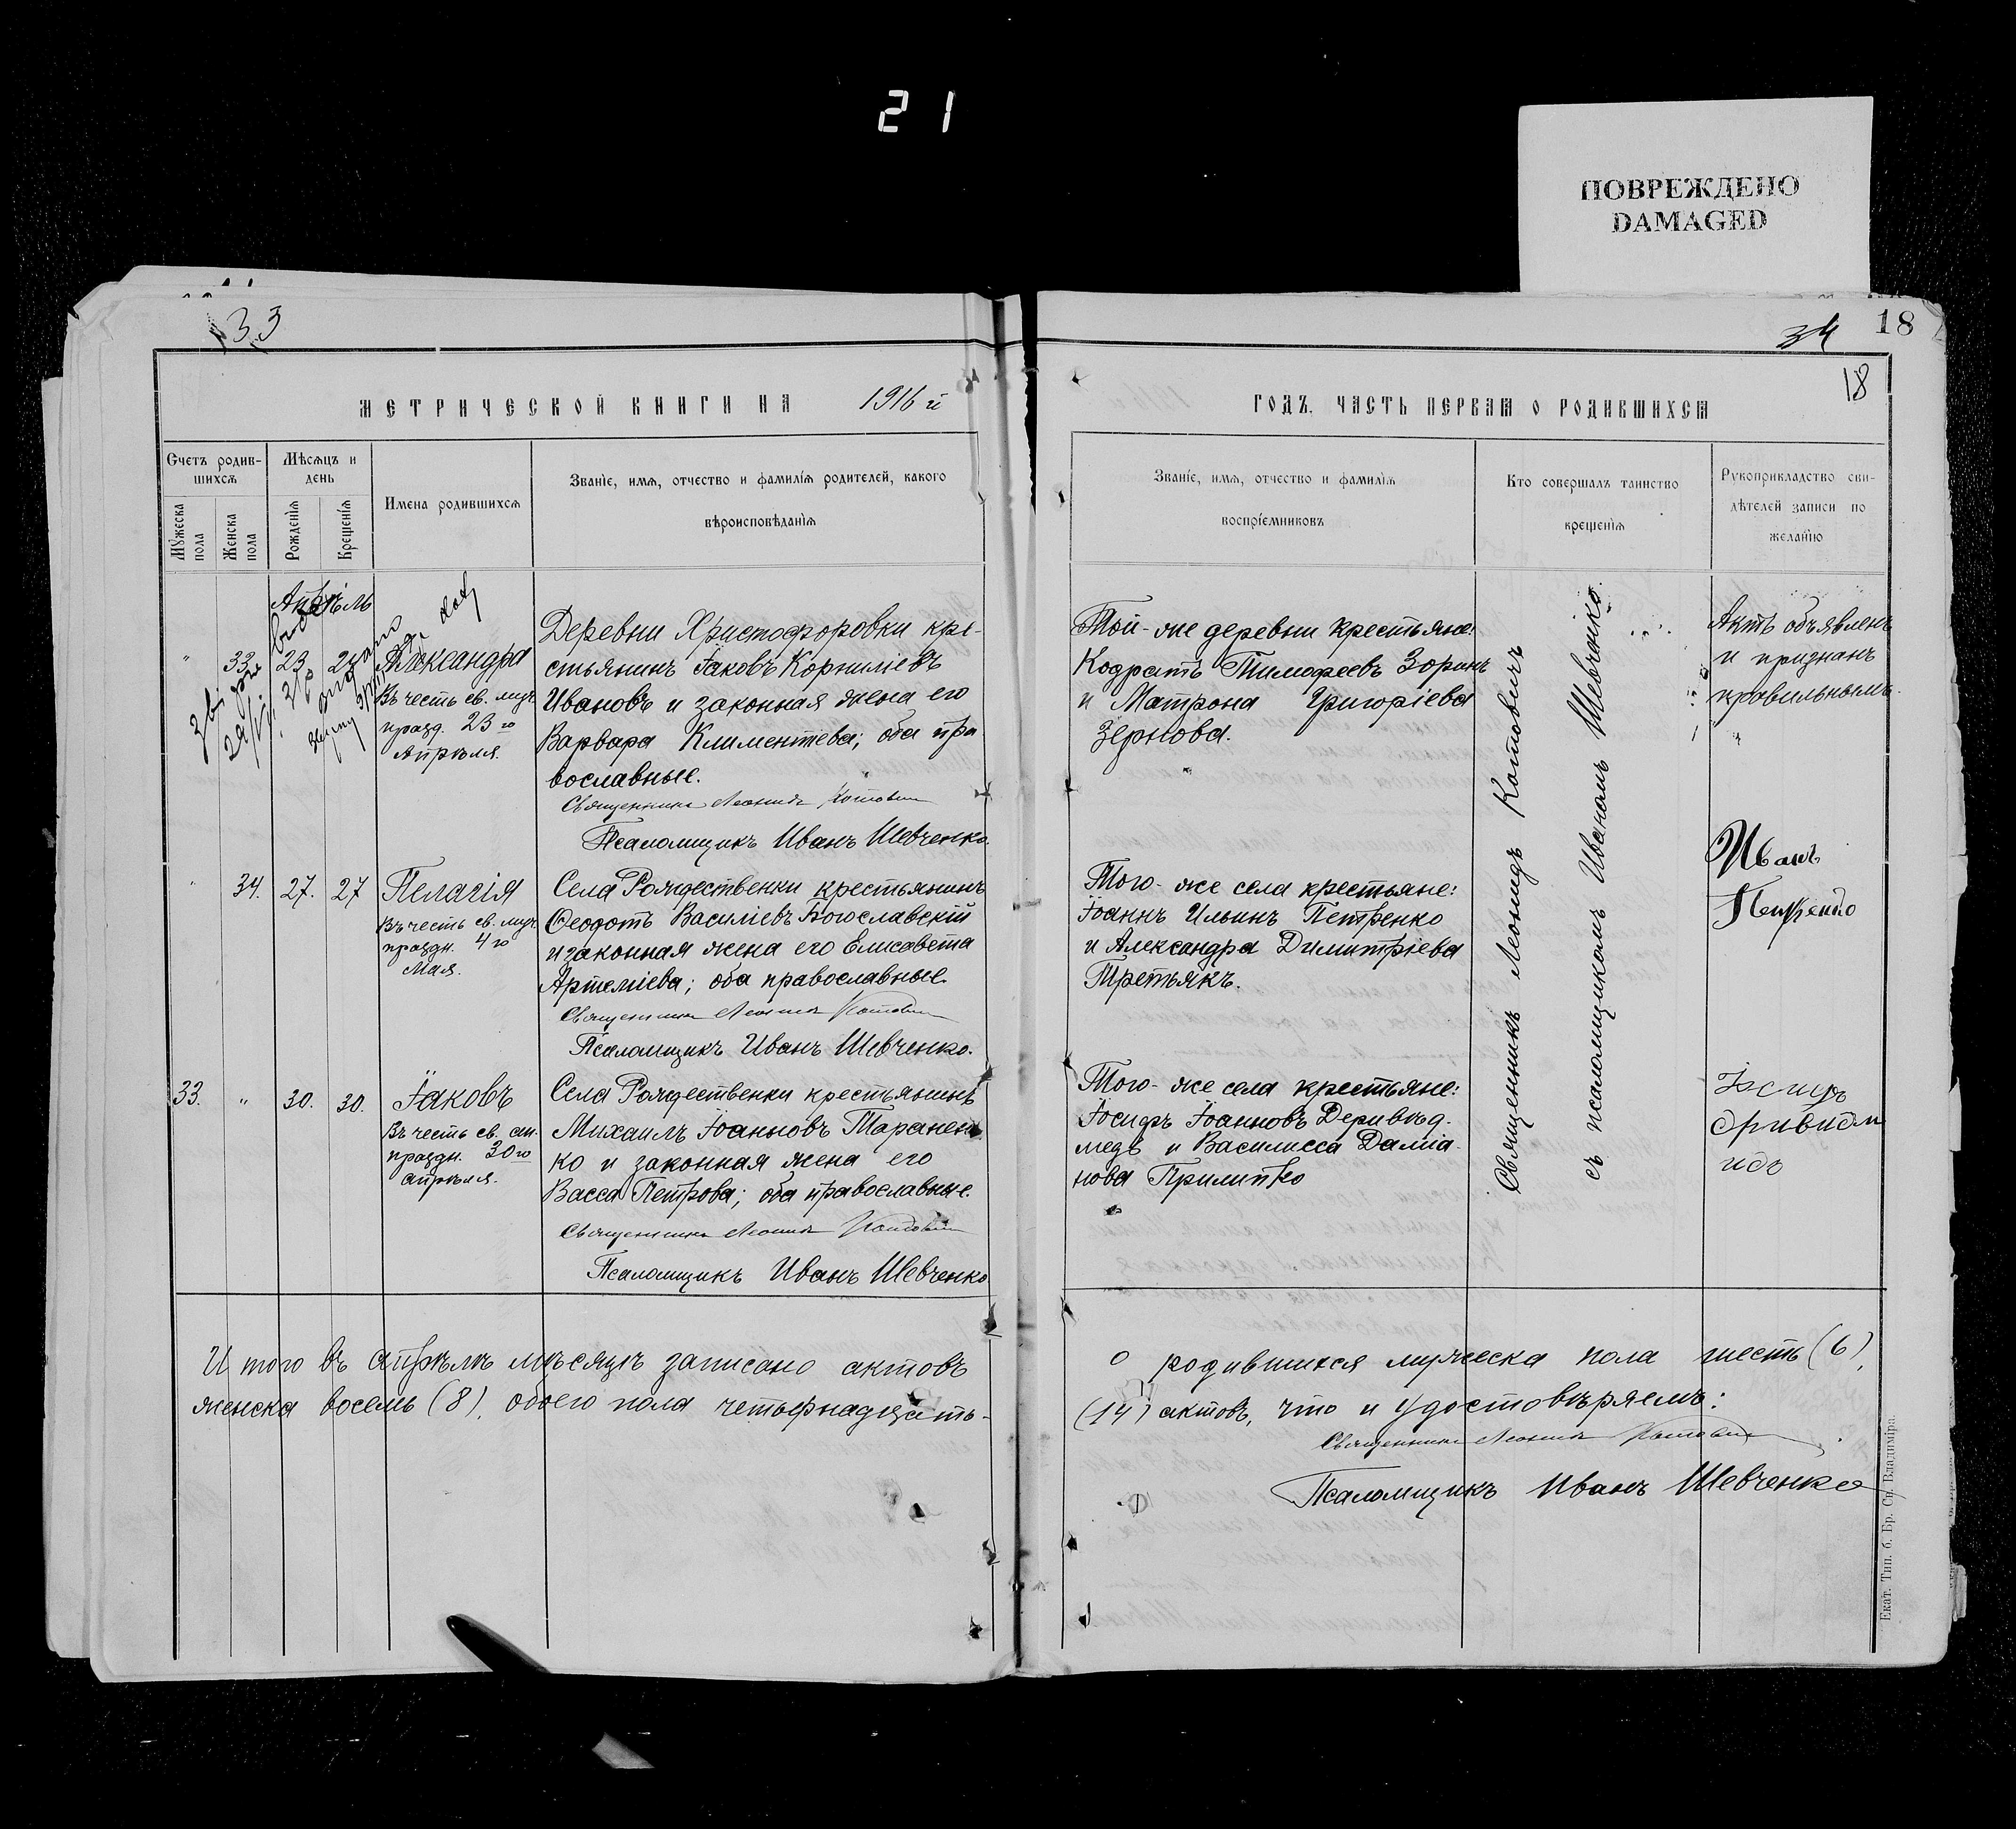 21
ПОВРЕЖДЕНО
DAMAGED
33
34
18
18
МЕТРИЧЕСКОЙ КНИГИ НА 1916 й
ГОДЪ, ЧАСТЬ ПЕРВАЯ О РОДИВШИХСЯ
Счетъ родив-
шихся
Мужеска
пола
Женска
пола
Мѣсяцъ и
день
Рожденія
Крещенія
Имена родившихся
Званіе, имя, отчество и фамилія родителей, какого
вѣроисповѣданія
Званіе, имя, отчество и фамилія
воспріемниковъ
Кто совершалъ таинство
крещенія
Рукоприкладство сви-
дѣтелей записи по
желанію
Апрѣль
" 33. 23 24 Александра
Въ честь св. муч.
празд. 23го
Апрѣля.
Деревни Христофоровки кре-
стьянинъ Іаковъ Корниліевъ
Ивановъ и законная жена его
Варвара Климентева; оба пра
вославные.
Священникъ Леонидъ Котович
Псаломщикъ Иванъ Шевченко.
Той-же деревни крестьяне:
Кодратъ Тимофеевъ Зоринъ
и Матрона Григоріева
Зернова.
Актъ объявленъ
и признанъ
правильнымъ.
" 34. 27. 27 Пелагія
Въ честь св. муч.
праздн. 4го
Мая.
Села Рождественки крестьянинъ
Феодотъ Василіевъ Богославскій
и законная жена его Елисавета
Артеміева; оба православные.
Священникъ Леонидъ Котович
Псаломщикъ Иванъ Шевченко.
Того-же села крестьяне:
Іоаннъ Ильинъ Петренко
и Александра Димитріева
Третьякъ.
Иванъ
Петренко
33. " 30. 30. Іаковъ
Въ честь св. ап.
праздн. 30го
апрѣля.
Села Рождественки крестьянинъ
Михаилъ Іоанновъ Таранен
ко и законная жена его
Васса Петрова; оба православные.
Священникъ Леонидъ Котович
Псаломщикъ Иванъ Шевченко
Того-же села крестьяне:
Іосифъ Іоанновъ Деривѣд.
медъ и Василисса Даміа-
нова Прилипко
Священникъ Леонидъ Котовичъ
съ псаломщикомъ Иваномъ Шевченко.
Итого въ апрѣлѣ мѣсяцѣ записано актовъ
о родившихся мужеска пола шесть (6),
женска восемь (8), обоего пола четырнадцать-
(14) актовъ, что и удостовѣряемъ:
Священникъ Леонидъ Котович
Псаломщикъ Иванъ Шевченко
Екат. Тип. б. Бр. Св. Владиміра.